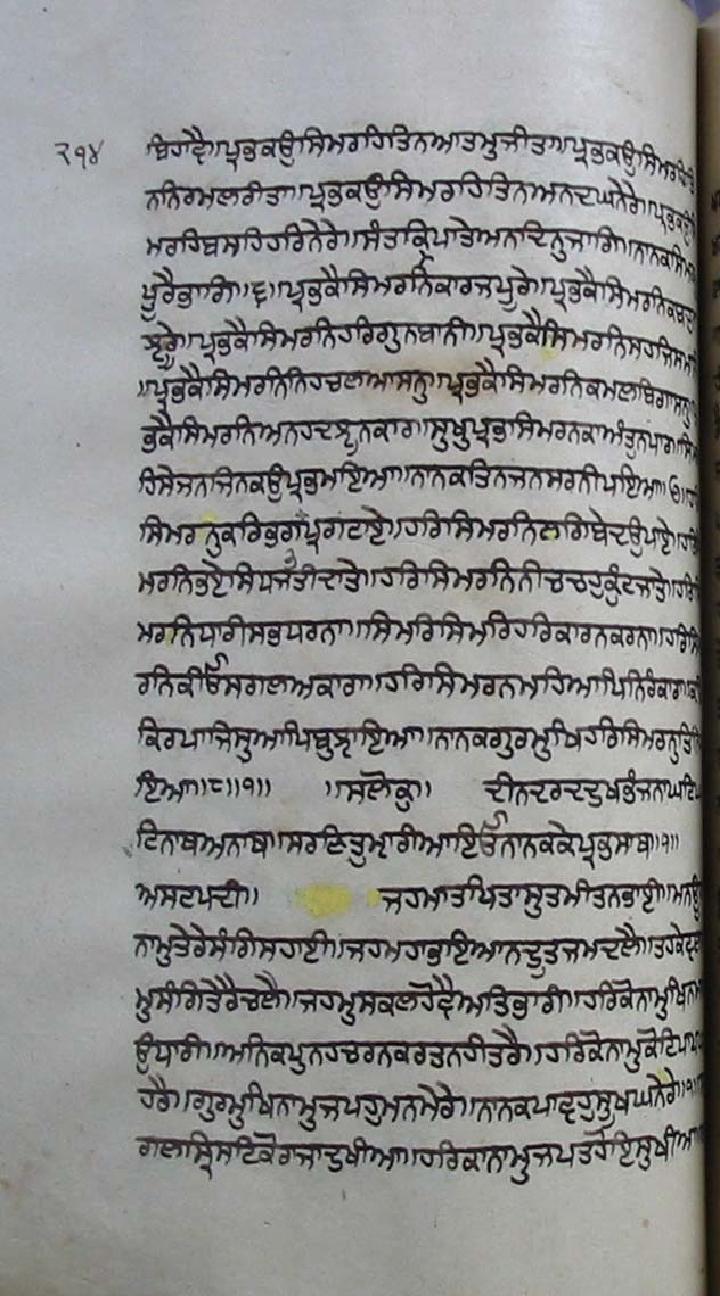 ੨੧੪
ਬਿਹਾਵੈ॥ਪ੍ਰਭਕਉਸਿਮਰਹਿਤਿਨਆਤਮੁਜੀਤਾ॥ਪ੍ਰਭਕਉਸਿਮਰਹਿਤਿ
ਨਨਿਰਮਲਰੀਤਾ॥ਪ੍ਰਭਕਉਸਿਮਰਹਿਤਿਨਅਨਦਘਨੇਰੇ॥ਪ੍ਰਭਕਉਸਿ
ਮਰਹਿਬਸਹਿਹਰਿਨੇਰੇ॥ਸੰਤਕ੍ਰਿਪਾਤੇਅਨਦਿਨੁਜਾਗਿ॥ਨਾਨਕਸਿਮ
ਪੂਰੈਭਾਗਿ॥੬॥ਪ੍ਰਭਕੈਸਿਮਰਨਿਕਾਰਜਪੂਰੇ॥ਪ੍ਰਭਕੈਸਿਮਰਨਿਕਬਹੁ
ਝੂਰੇ॥ਪ੍ਰਭਕੈਸਿਮਰਨਿਹਰਿਗੁਨਬਾਨੀ॥ਪ੍ਰਭਕੈਸਿਮਰਨਿਸਹਜਿਸਮਾ
॥ਪ੍ਰਭਕੈਸਿਮਰਨਿਨਿਹਚਲਆਸਨੁ॥ਪ੍ਰਭਕੈਸਿਮਰਨਿਕਮਲਬਿਗਾਸਨੁ
ਭਕੈਸਿਮਰਨਿਅਨਹਦਝੁਨਕਾਰ॥ਸੁਖੁਪ੍ਰਭਸਿਮਰਨਕਾਅੰਤੁਨਪਾਰ॥ਸਿਮ
ਹਿਸੇਜਨਜਿਨਕਉਪ੍ਰਭਮਇਆ॥ਨਾਨਕਤਿਨਜਨਸਰਨੀਪਇਆ॥੭॥ਹਰਿ
ਸਿਮਰਨੁਕਰਿਭਗਤਪ੍ਰਗਟਾਏ॥ਹਰਿਸਿਮਰਨਿਲਗਿਬੇਦਉਪਾਏ॥ਹਰਿ
ਮਰਨਿਭਏਸਿਧਜਤੀਦਾਤੇ॥ਹਰਿਸਿਮਰਨਿਨੀਚਚਹੁਕੁੰਟਜਾਤੇ॥ਹਰਿ
ਮਰਨਿਧਾਰੀਸਭਧਰਨਾ॥ਸਿਮਰਿਸਿਮਰਿਹਰਿਕਾਰਨਕਰਨਾ॥ਹਰਿਸਿ
ਰਨਿਕੀਓਸਗਲਅਕਾਰਾ॥ਹਰਿਸਿਮਰਨਮਹਿਆਪਿਨਿਰੰਕਾਰਾ॥ਕਰਿ
ਕਿਰਪਾਜਿਸੁਆਪਿਬੁਝਾਇਆ॥ਨਾਨਕਗੁਰਮੁਖਿਹਰਿਸਿਮਰਨੁਤਿਨਿ
ਇਆ॥੮॥੧॥ ॥ਸਲੋਕੁ॥ ਦੀਨਦਰਦਦੁਖਭੰਜਨਾਘਟਿਘ
ਟਿਨਾਥਅਨਾਥ॥ਸਰਣਿਤੁਮ੍ਹਾਰੀਆਇਓਨਾਨਕਕੇਪ੍ਰਭਸਾਥ॥੧॥
ਅਸਟਪਦੀ॥ ਜਹਮਾਤਪਿਤਾਸੁਤਮੀਤਨਭਾਈ॥ਮਨਊ
ਨਾਮੁਤੇਰੇਸੰਗਿਸਹਾਈ॥ਜਹਮਹਾਭਇਆਨਦੂਤਜਮਦਲੈ॥ਤਹਕੇਵਲ
ਮੁਸੰਗਿਤੇਰੈਚਲੈ॥ਜਹਮੁਸਕਲਹੋਵੈਅਤਿਭਾਰੀ॥ਹਰਿਕੋਨਾਮੁਖਿਨਮ
ਉਧਾਰੀ॥ਅਨਿਕਪੁਨਹਚਰਨਕਰਤਨਹੀਤਰੈ॥ਹਰਿਕੋਨਾਮੁਕੋਟਿਪਾਪ
ਹਰੈ॥ਗੁਰਮੁਖਿਨਾਮੁਜਪਹੁਮਨਮੇਰੇ॥ਨਾਨਕਪਾਵਹੁਸੁਖਘਨੇਰੇ॥੧॥ਸ
ਗਲਸ੍ਰਿਸਟਿਕੋਰਾਜਾਦੁਖੀਆ॥ਹਰਿਕਾਨਾਮੁਜਪਤਹੋਇਸੁਖੀਆ॥